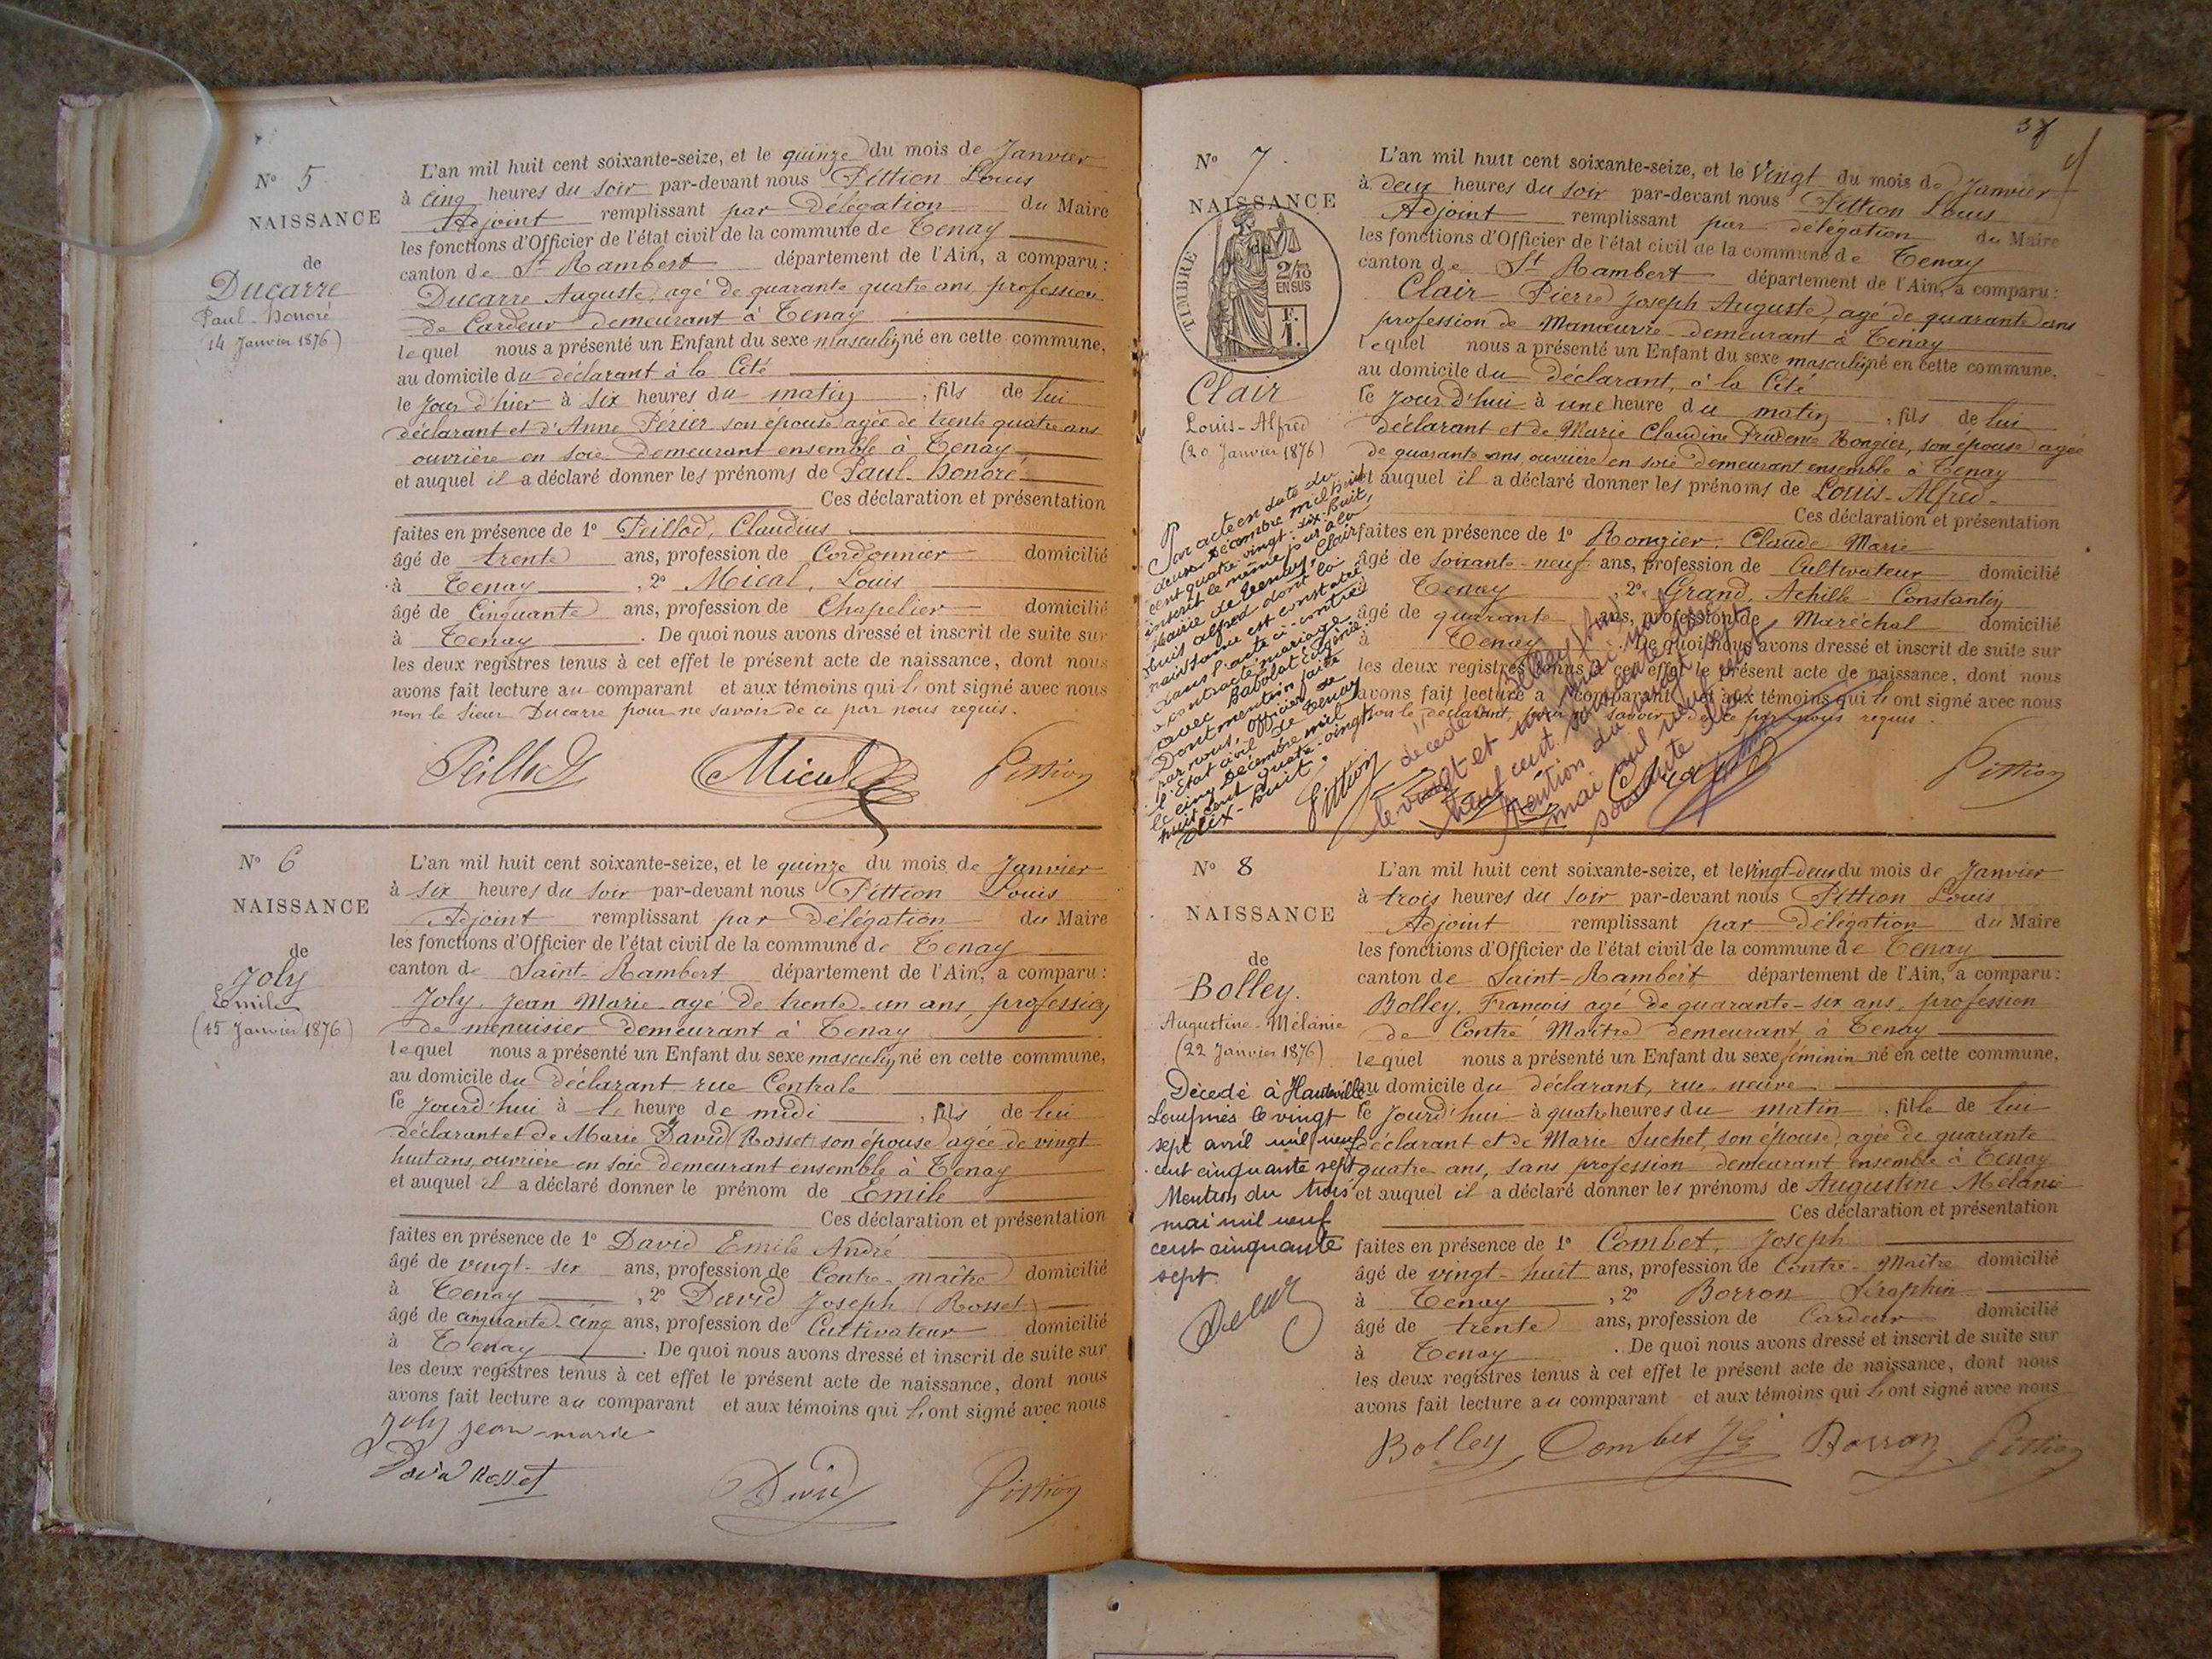 N° 5
NAISSANCE
de
Ducarre
Paul-Honoré
(14 Janvier 1876)
L'an mil huit cent soixante-seize, et le quinze du mois de Janvier
à cinq heures du soir par-devant nous Pittion Louis
Adjoint remplissant par délégation du Maire
les fonctions d'Officier de l'état civil de la commune de Tenay
canton de St Rambert département de l'Ain, a comparu :
Ducarre Auguste, agé de quarante quatre ans profession
de Cardeur demeurant à Tenay
lequel nous a présenté un Enfant du sexe masculin né en cette commune,
au domicile du déclarant à la Cité
le jour d'hier à six heures du matin, fils de lui
déclarant et d'Anne Périer son épouse agée de trente quatre ans
ouvrière en soie demeurant ensemble à Tenay
et auquel il a déclaré donner les prénoms de Paul-Honoré
Ces déclaration et présentation
faites en présence de 1° Peillod, Claudius
âgé de trente ans, profession de Cordonnier domicilié
à Tenay, 2° Mical, Louis
âgé de Cinquante ans, profession de Chapelier domicilié
à Tenay. De quoi nous avons dressé et inscrit de suite sur
les deux registres tenus à cet effet le présent acte de naissance, dont nous
avons fait lecture au comparant et aux témoins qui l'ont signé avec nous
non le sieur Ducarre pour ne savoir de ce par nous requis.
Peillod Mical Pittion
N° 6
NAISSANCE
de
Joly
Emile
(15 Janvier 1876)
L'an mil huit cent soixante-seize, et le quinze du mois de Janvier
à six heures du soir par-devant nous Pittion Louis
Adjoint remplissant par délégation du Maire
les fonctions d'Officier de l'état civil de la commune de Tenay
canton de Saint-Rambert département de l'Ain, a comparu :
Joly, Jean Marie agé de trente-un ans, profession
de menuisier demeurant à Tenay
lequel nous a présenté un Enfant du sexe masculin né en cette commune,
au domicile du déclarant rue Centrale
le jourd'hui à l' heure de midi, fils de lui
déclarant et de Marie David (Rosset) son épouse agée de vingt
huit ans, ouvrière en soie demeurant ensemble à Tenay
et auquel il a déclaré donner le prénom de Emile
Ces déclaration et présentation
faites en présence de 1° David Emile André
âgé de vingt-six ans, profession de Contre-maître domicilié
à Tenay, 2° David Joseph (Rosset)
âgé de cinquante-cinq ans, profession de Cultivateur domicilié
à Tenay. De quoi nous avons dressé et inscrit de suite sur
les deux registres tenus à cet effet le présent acte de naissance, dont nous
avons fait lecture au comparant et aux témoins qui l'ont signé avec nous
Joly jean-marie
David Rosset David Pittion
N° 7
NAISSANCE
de
TIMBRE
2/10 EN SUS
F. 1.
Clair
Louis-Alfred
(20 Janvier 1876)
L'an mil huit cent soixante-seize, et le Vingt du mois de Janvier
à deux heures du soir par-devant nous Pittion Louis
Adjoint remplissant par délégation du Maire
les fonctions d'Officier de l'état civil de la commune de Tenay
canton de St Rambert département de l'Ain, a comparu :
Clair Pierre Joseph Auguste, agé de quarante ans
profession de Manœuvre demeurant à Tenay
lequel nous a présenté un Enfant du sexe masculin né en cette commune,
au domicile du déclarant, à la Cité
le jourd'hui à une heure du matin, fils de lui
déclarant et de Marie Claudine Prudence Rongier, son épouse agée
de quarante ans, ouvrière en soie demeurant ensemble à Tenay
et auquel il a déclaré donner les prénoms de Louis-Alfred
Ces déclaration et présentation
faites en présence de 1° Rongier, Claude Marie
âgé de soixante-neuf ans, profession de Cultivateur domicilié
Tenay, 2° Grand, Achille Constantin
âgé de quarante ans, profession de Maréchal domicilié
à Tenay. De quoi nous avons dressé et inscrit de suite sur
les deux registres tenus à cet effet le présent acte de naissance, dont nous
avons fait lecture a comparant et aux témoins qui l'ont signé avec nous
non le déclarant, pour ne savoir de ce par nous requis.
Pittion
Par acte en date du
deux Décembre mil huit
cent quatre-vingt-dix-huit,
inscrit le même jour à la
Mairie de Tenay, Clair
Louis alfred dont la
naissance est constatée
dans l'acte ci-contre
a contracté mariage
avec Babolat Eugénie.
Dont mention faite
par nous, officier de
l'état civil de Tenay
le cinq Décembre mil
huit cent quatre-vingt
dix-huit.
Pittion
décédé à Belley (Ain)
le vingt et un mai mil
neuf cent soixante sept
mention du vingt sept
mai mil neuf cent
soixante sept
N° 8
NAISSANCE
de
Bolley.
Augustine-Mélanie
(22 Janvier 1876)
Décédé à Hauteville
Lompnès le vingt
sept avril mil neuf
cent cinquante sept
Mention du trois
mai mil neuf
cent cinquante
sept
L'an mil huit cent soixante-seize, et le Vingt-deux du mois de Janvier
à trois heures du soir par-devant nous Pittion Louis
Adjoint remplissant par délégation du Maire
les fonctions d'Officier de l'état civil de la commune de Tenay
canton de Saint-Rambert département de l'Ain, a comparu :
Bolley, François agé de quarante-six ans, profession
de Contre Maître demeurant à Tenay
lequel nous a présenté un Enfant du sexe féminin né en cette commune,
au domicile du déclarant, rue neuve
le jourd'hui à quatre heures du matin, fille de lui
déclarant et de Marie Suchet, son épouse, agée de quarante
quatre ans, sans profession demeurant ensemble à Tenay
et auquel il a déclaré donner les prénoms de Augustine Mélanie
Ces déclaration et présentation
faites en présence de 1° Combet, Joseph
âgé de vingt-huit ans, profession de Contre-Maître domicilié
à Tenay, 2° Borron Séraphin
âgé de trente ans, profession de Cardeur domicilié
à Tenay. De quoi nous avons dressé et inscrit de suite sur
les deux registres tenus à cet effet le présent acte de naissance, dont nous
avons fait lecture au comparant et aux témoins qui l'ont signé avec nous
Bolley Combet Borron Pittion